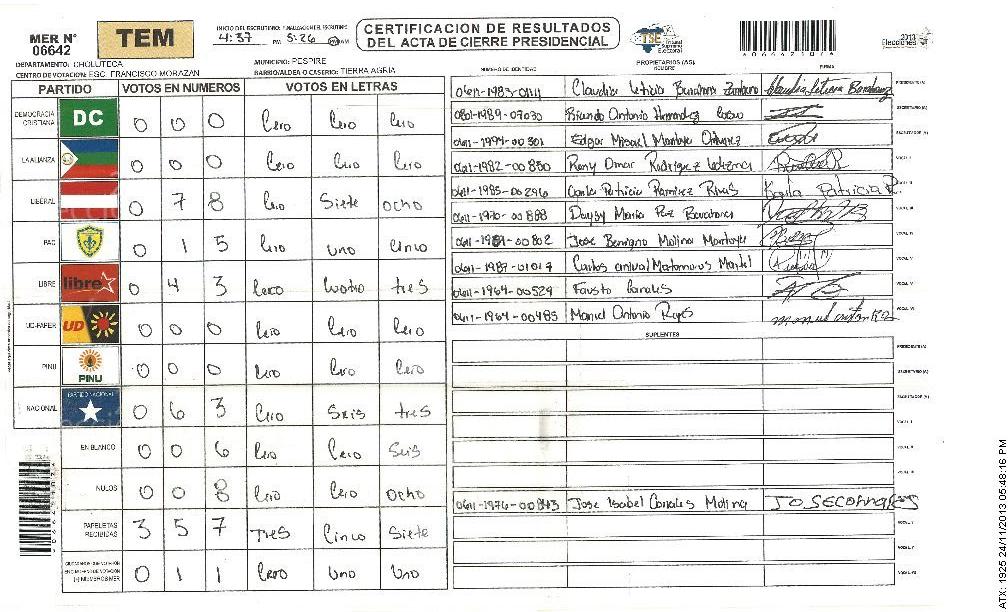 MER Nº 06642
TEM
INICIO DEL ESCRUTINIO: FINALIZACION EL ESCRUTINIO
4:37 PM 5:26
CERTIFICACION DE RESULTADOS DEL ACTA DE CIERRE PRESIDENCIAL
TSE Tribunal Supremo Electoral
2013 Elecciones
DEPARTAMENTO: CHOLUTECA
MUNICIPIO: PESPIRE
CENTRO DE VOTACION: ESC. FRANCISCO MORAZAN
BARRIO/ALDEA O CASERIO: TIERRA AGRIA
PARTIDO VOTOS EN NUMEROS VOTOS EN LETRAS
DEMOCRACIA CRISTIANA DC 0 0 0 Cero Cero Cero
LA ALIANZA 0 0 0 Cero Cero Cero
LIBERAL 0 7 8 Cero Siete ocho
PAC 0 1 5 Cero uno Cinco
LIBRE libre 0 4 3 Cero Cuatro tres
UD-FAPER UD 0 0 0 Cero Cero Cero
PINU PINU 0 0 0 Cero Cero Cero
NACIONAL PARTIDO NACIONAL 0 6 3 Cero Seis tres
EN BLANCO 0 0 6 Cero Cero Seis
NULOS 0 0 8 Cero Cero Ocho
PAPELETAS RECIBIDAS 3 5 7 Tres Cinco Siete
0 1 1 Cero Uno Uno
NUMERO DE IDENTIDAD PROPIETARIOS (AS) NOMBRE FIRMA
0611-1983-01111 Claudia Leticia PRESIDENTE (A)
0801-1989-07030 Ricardo Antonio Hernandez SECRETARIO (A)
0611-1994-00301 Edgar Misael Montoya Ordoñez ESCRUTADOR (A)
0611-1982-00850 Rony Omar Rodriguez VOCAL I
0611-1985-00296 Carla Patricia Ramirez Rivas Karla Patricia R. VOCAL II
0611-1970-00888 Daysy Maria VOCAL III
00802 Jose Benigno Molina Montoya VOCAL IV
0611-1987-01017 Carlos VOCAL V
0611-1964-00529 Fausto Canales VOCAL VI
0611-1964-00485 Manuel Antonio Reyes
SUPLENTES
PRESIDENTE (A)
SECRETARIO (A)
ESCRUTADOR (A)
VOCAL I
VOCAL II
VOCAL III
0611-1976-00843 Jose Isabel Canales Molina
VOCAL V
ATX: 1925 24/11/2013 05:48:16 PM